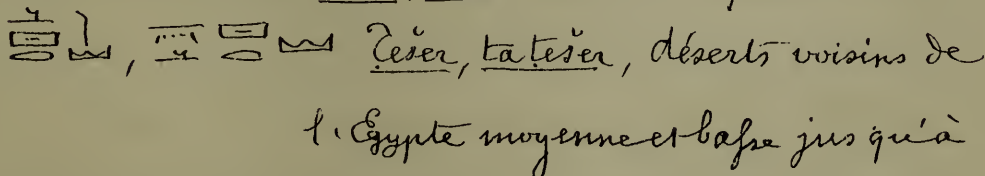 Tešer, ta tešer, déserts voisins de
l'Egypte moyenne et basse jusqu'à